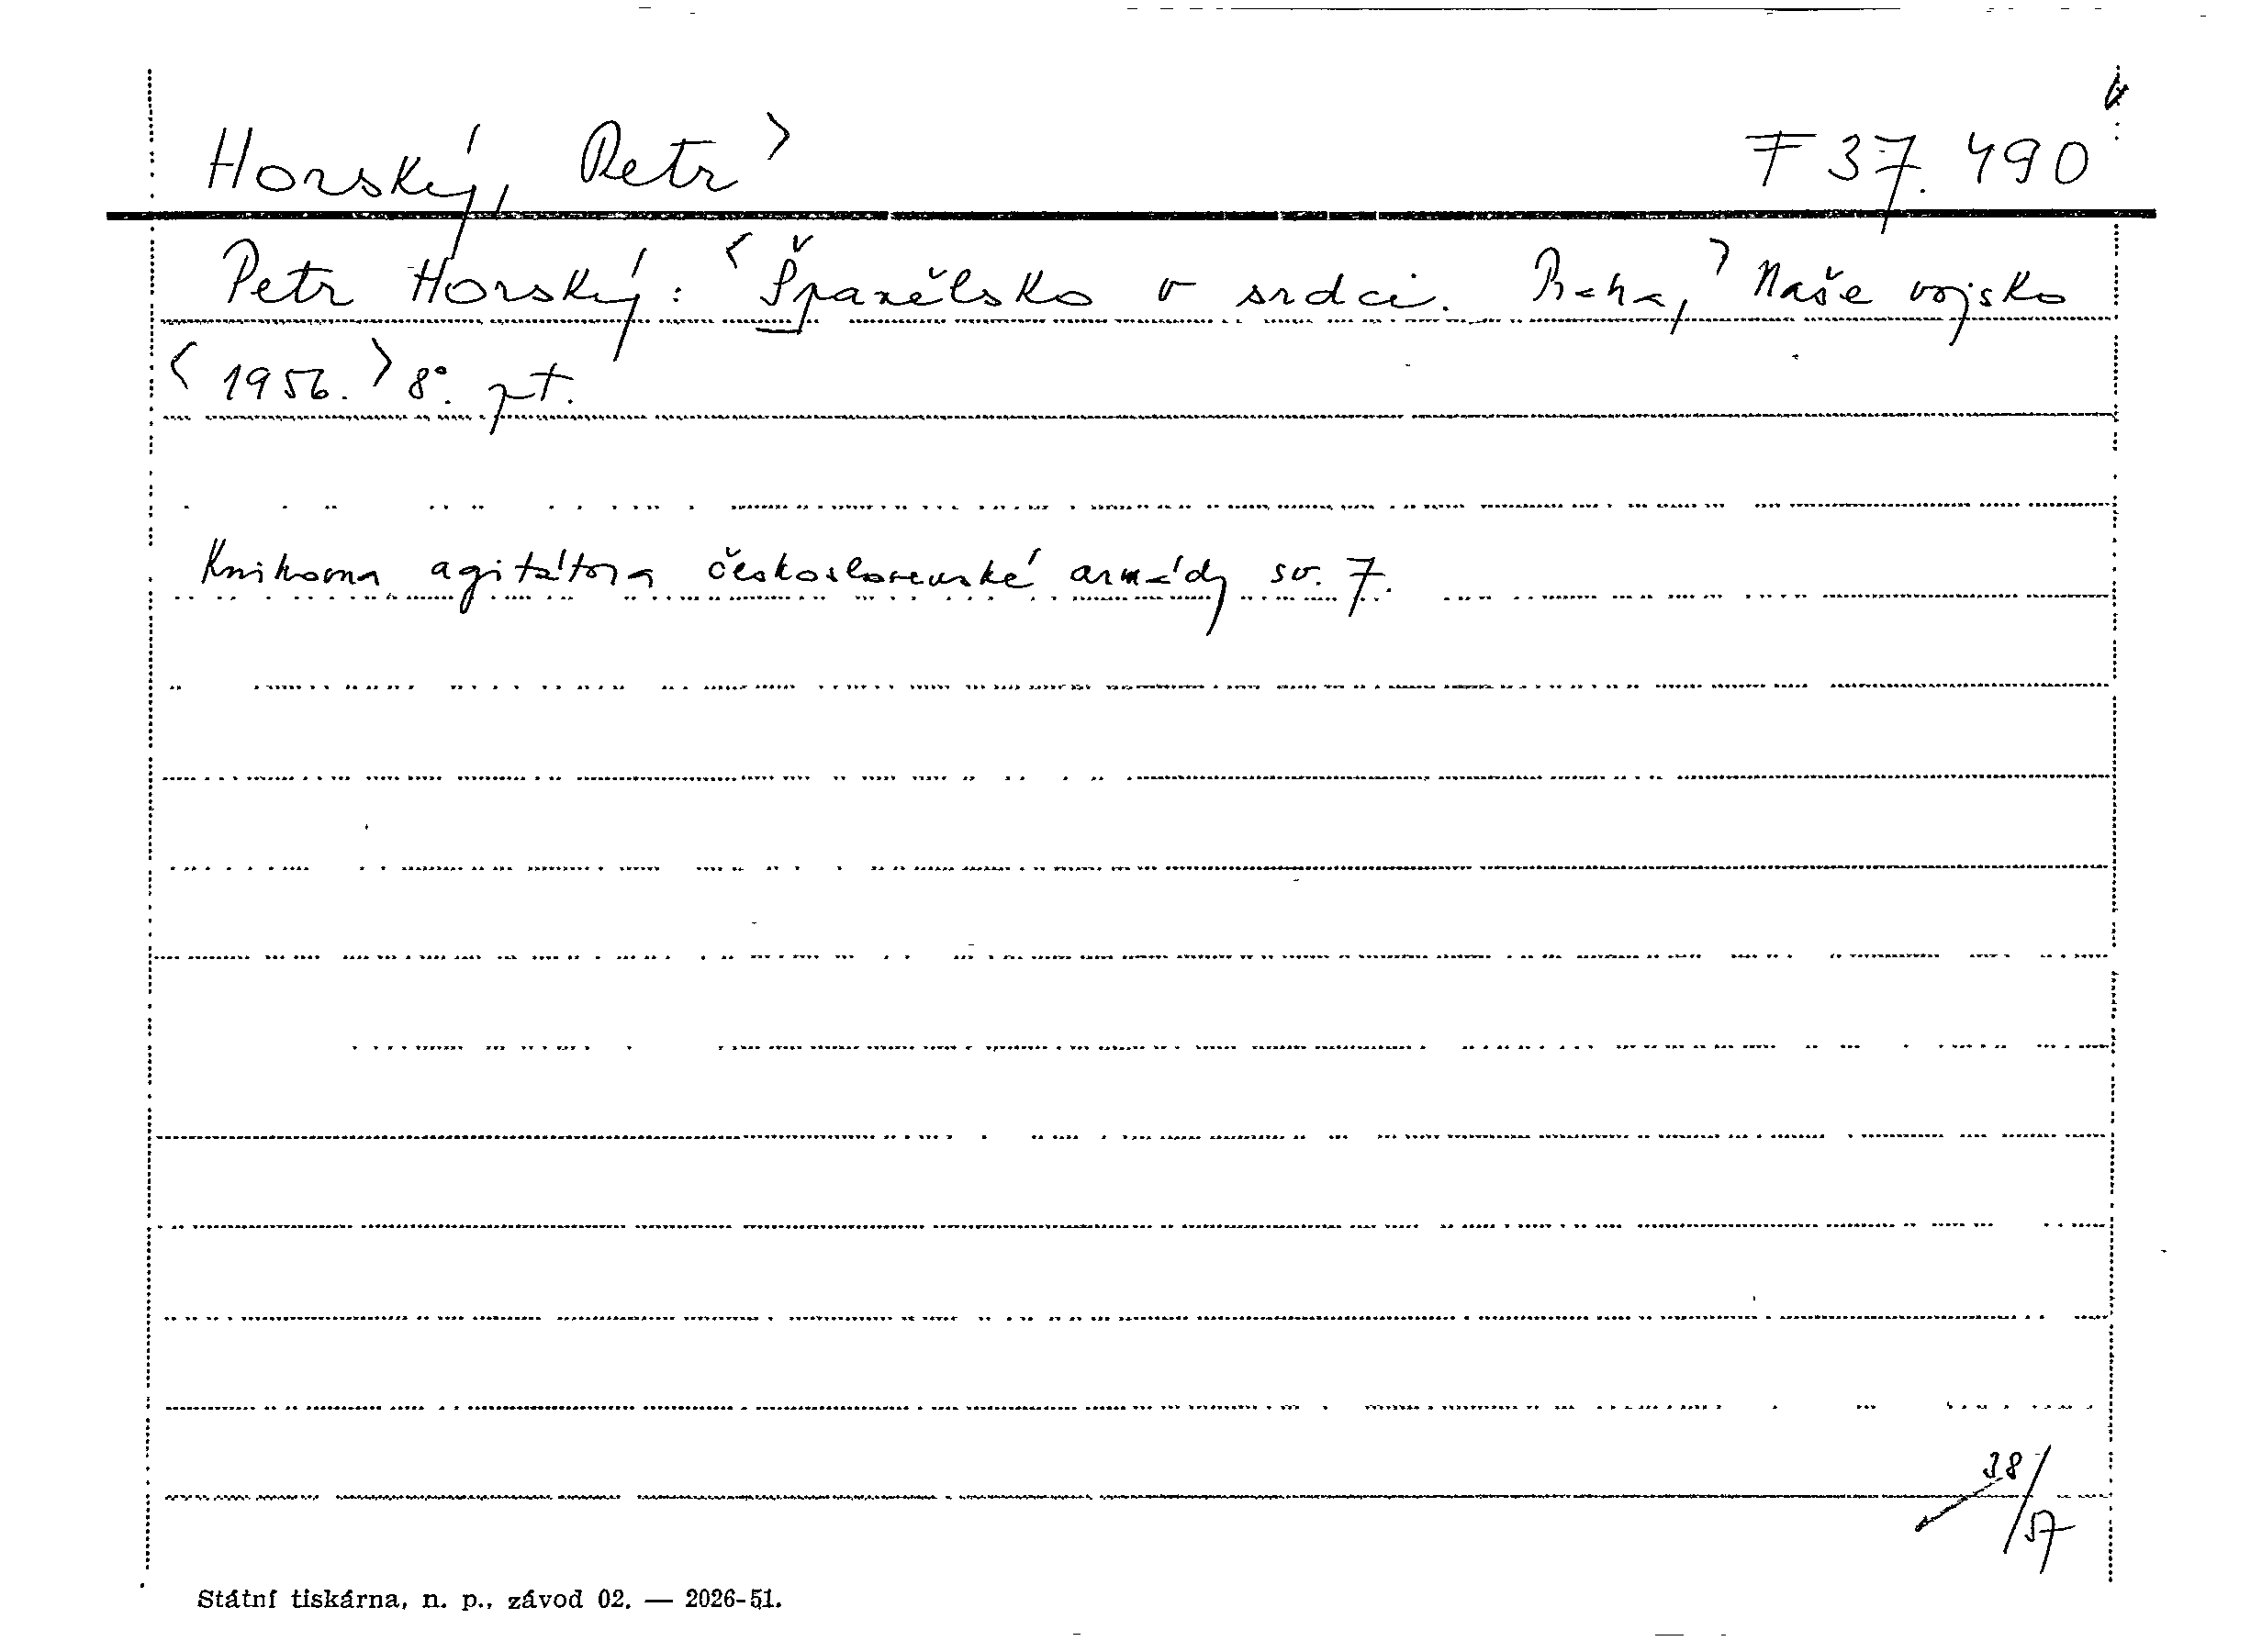 Horský, Petr > F 37.490
Petr Horský: < Španělsko v srdci. Praha, > Naše vojsko
< 1956. > 8°. pt.
Knihovna agitátora československé armády sv. 7.
38/57
Státní tiskárna, n. p., závod 02. — 2026-51.